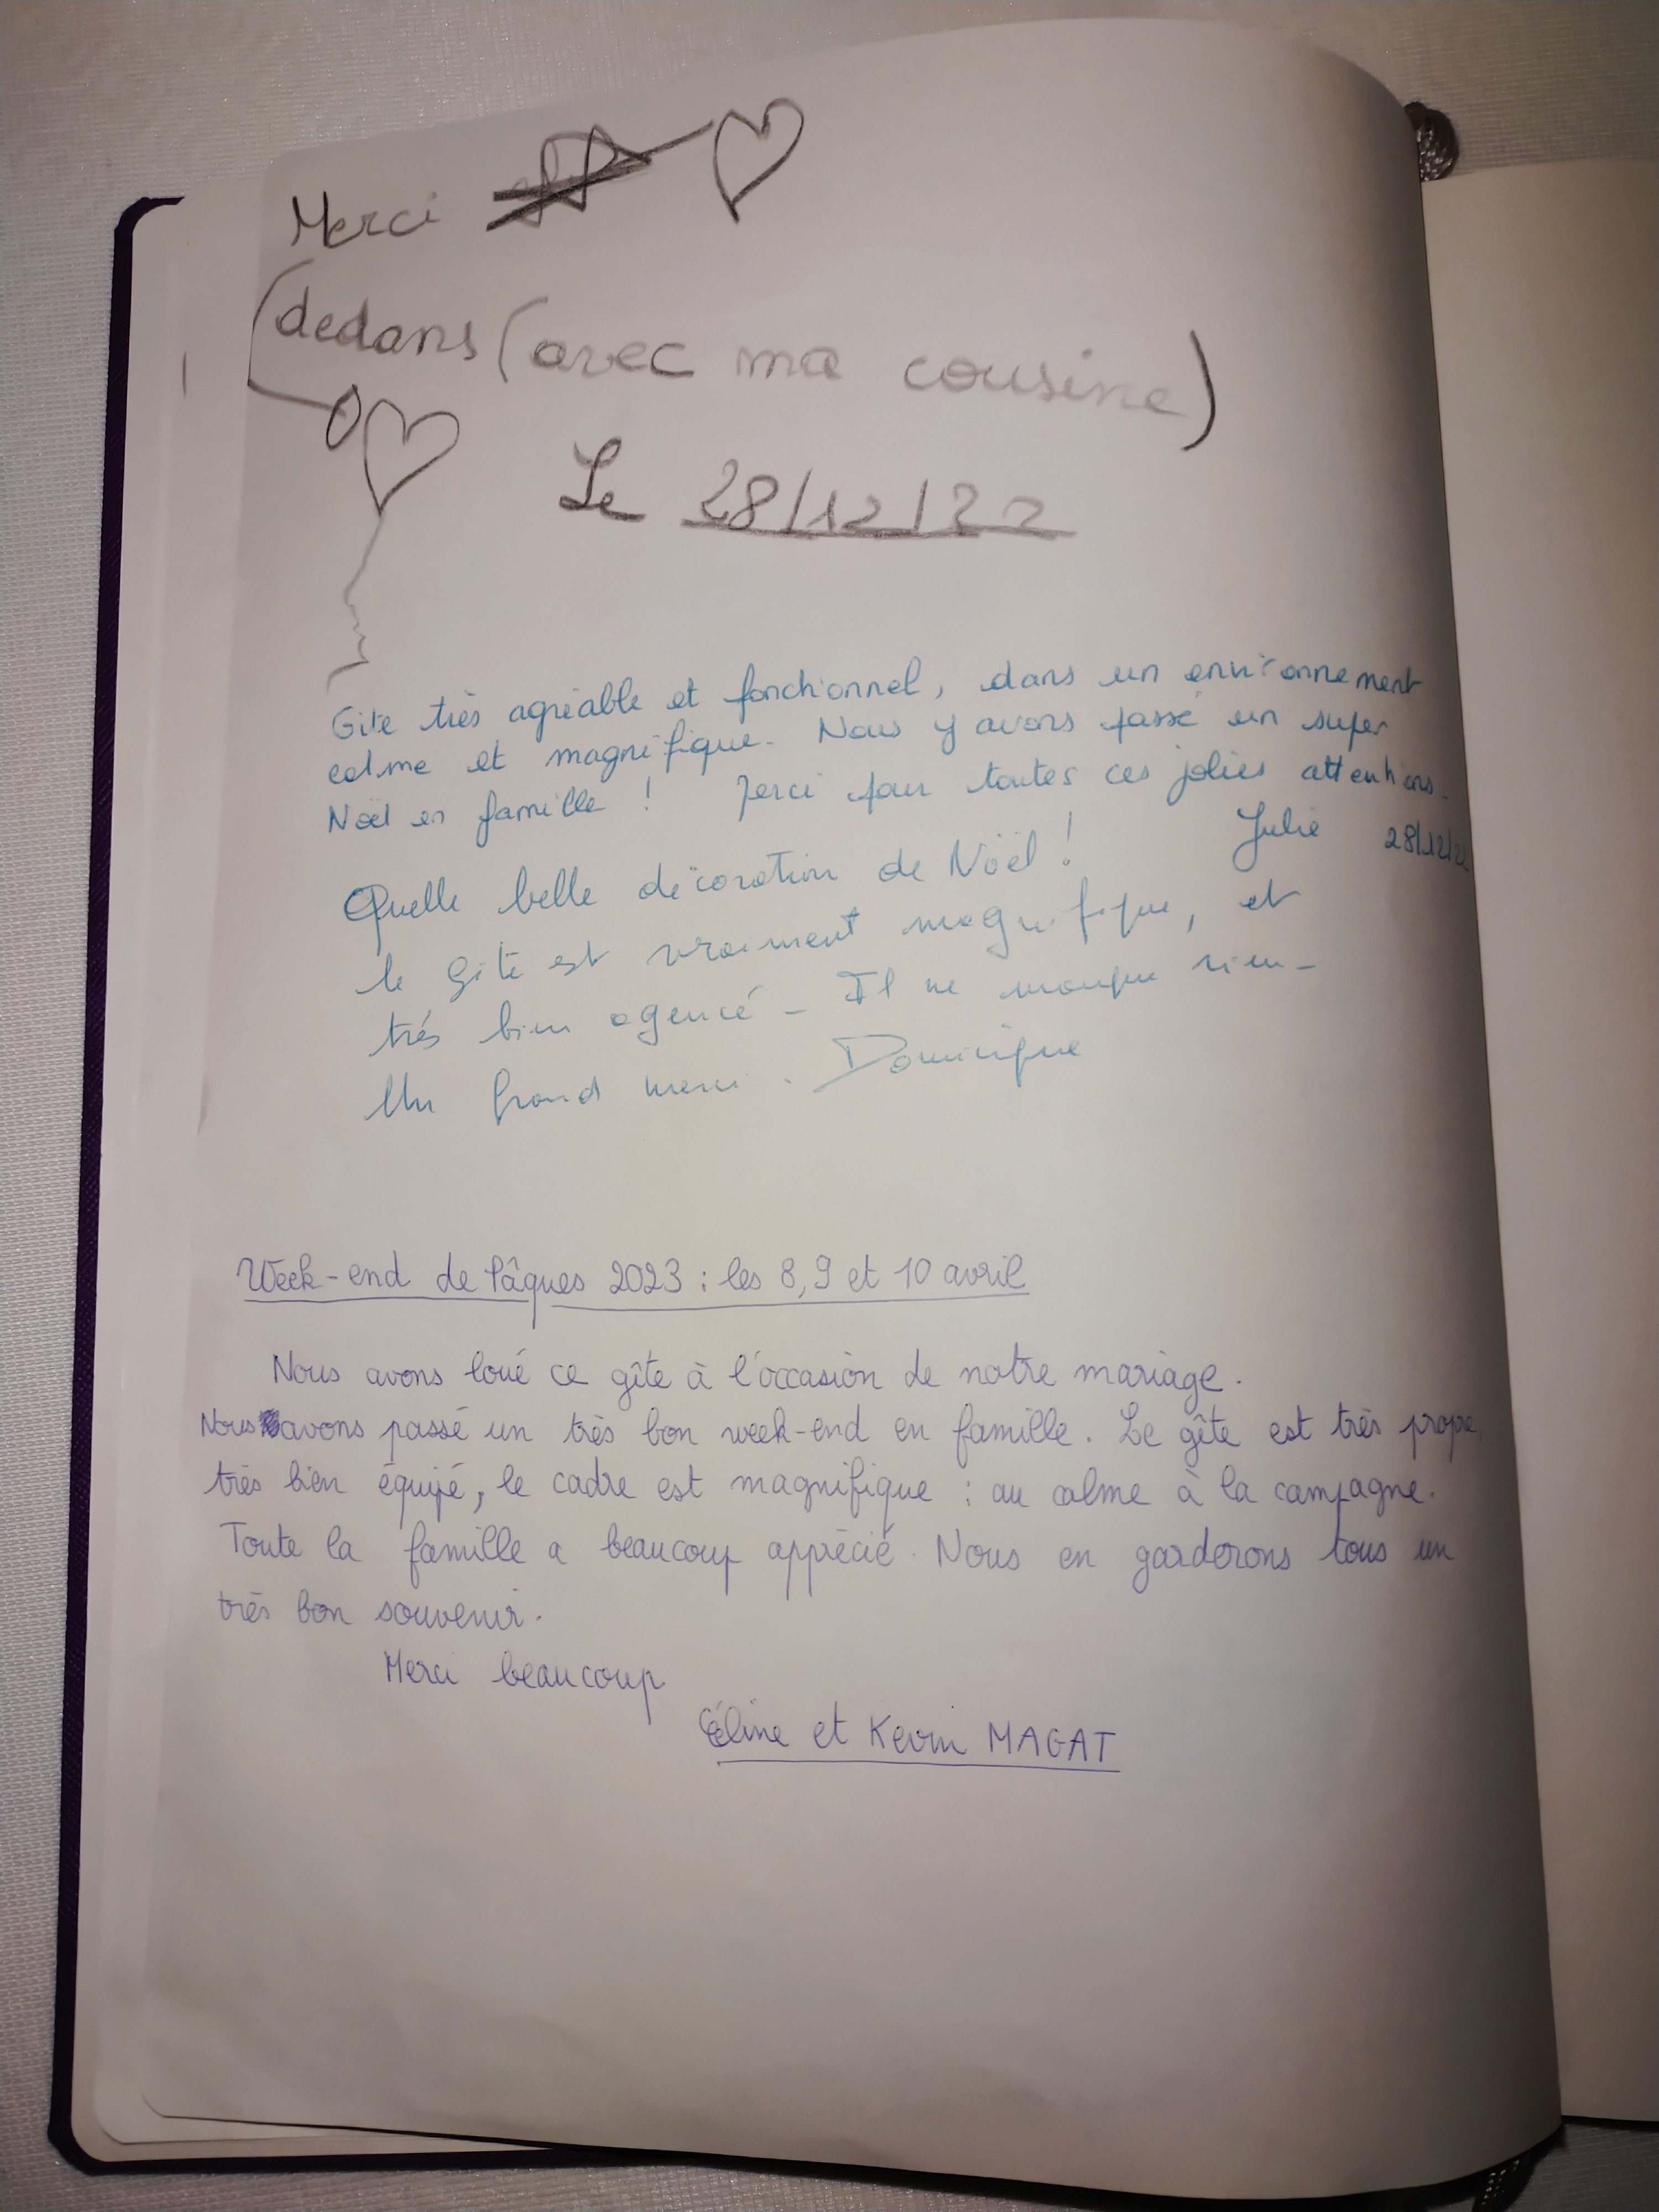 Merci
dedans (avec ma cousine)
Le 28/12/22
Gite très agréable et fonctionnel, dans un environnement
calme et magnifique. Nous y avons passé un super
Noël en famille ! Merci pour toutes ces jolies attentions.
Julie 28/12/22
Quelle belle décoration de Noël !
le gîte est vraiment magnifique, et
très bien agencé - Il ne manque rien -
Un grand merci. Dominique
Week-end de Pâques 2023 : les 8, 9 et 10 avril
Nous avons loué ce gîte à l'occasion de notre mariage.
Nous avons passé un très bon week-end en famille. Le gîte est très propre,
très bien équipé, le cadre est magnifique : au calme à la campagne.
Toute la famille a beaucoup apprécié. Nous en garderons tous un
très bon souvenir.
Merci beaucoup
Céline et Kevin MAGAT